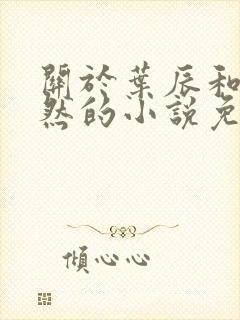 關於葉辰和
然的小說免
傾心心